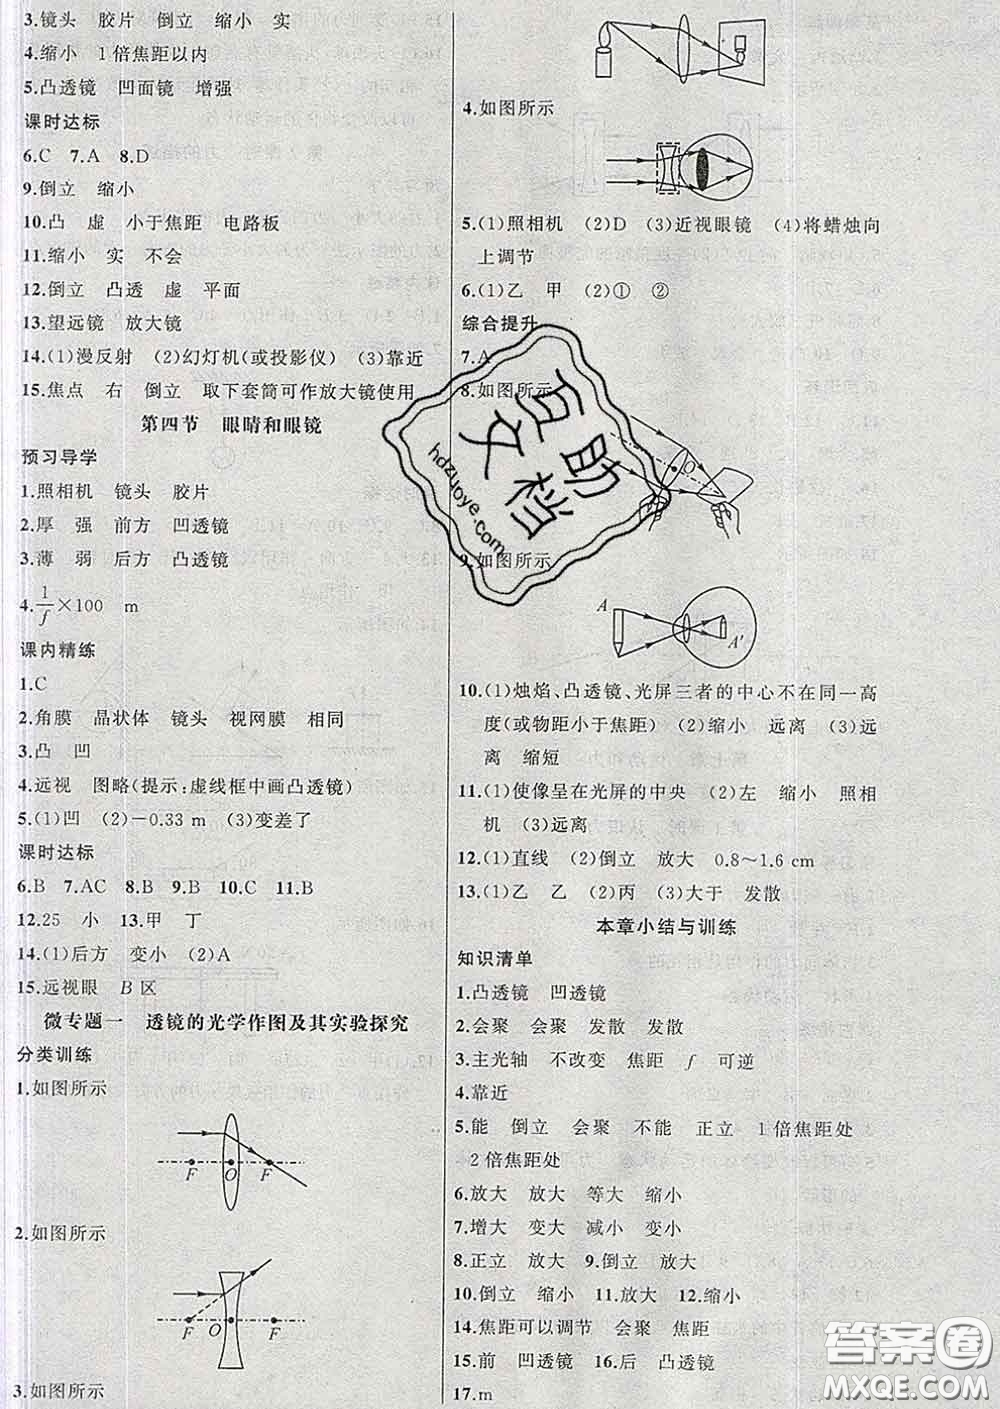 3.镜头　胶片　倒立　缩小　实
4.缩小　1倍焦距以内
5.凸透镜　凹面镜　增强
课时达标
6.C　7.A　8.D
9.倒立　缩小
10.凸　虚　小于焦距　电路板
11.缩小　实　不会
12.倒立　凸透　虚　平面
13.望远镜　放大镜
14.(1)漫反射　(2)幻灯机(或投影仪)　(3)靠近
15.焦点　右　倒立　取下套筒可作放大镜使用
第四节　眼睛和眼镜
预习导学
1.照相机　镜头　胶片
2.厚　强　前方　凹透镜
3.薄　弱　后方　凸透镜
4.1/f×100　m
课内精练
1.C
2.角膜　晶状体　镜头　视网膜　相同
3.凸　凹
4.远视　图略(提示:虚线框中画凸透镜)
5.(1)凹　(2)-0.33 m　(3)变差了
课时达标
6.B　7.AC　8.B　9.B　10.C　11.B
12.25　小　13.甲　丁
14.(1)后方　变小　(2)A
15.远视眼　B区
微专题一　透镜的光学作图及其实验探究
分类训练
1.如图所示
F　O　F
2.如图所示
F　O　F
3.如图所示
4.如图所示
5.(1)照相机　(2)D　(3)近视眼镜　(4)将蜡烛向
上调节
6.(1)乙　甲　(2)①　②
综合提升
7.A
8.如图所示
O
9.如图所示
A
A′
10.(1)烛焰、凸透镜、光屏三者的中心不在同一高
度(或物距小于焦距)　(2)缩小　远离　(3)远
离　缩短
11.(1)使像呈在光屏的中央　(2)左　缩小　照相
机　(3)远离
12.(1)直线　(2)倒立　放大　0.8～1.6 cm
13.(1)乙　乙　(2)丙　(3)大于　发散
本章小结与训练
知识清单
1.凸透镜　凹透镜
2.会聚　会聚　发散　发散
3.主光轴　不改变　焦距　f　可逆
4.靠近
5.能　倒立　会聚　不能　正立　1倍焦距处
2倍焦距处
6.放大　放大　等大　缩小
7.增大　变大　减小　变小
8.正立　放大　9.倒立　放大
10.倒立　缩小　11.放大　12.缩小
14.焦距可以调节　会聚　焦距
15.前　凹透镜　16.后　凸透镜
17.m
百助文档
hdzuoye.com
答案圈
MXQE.COM